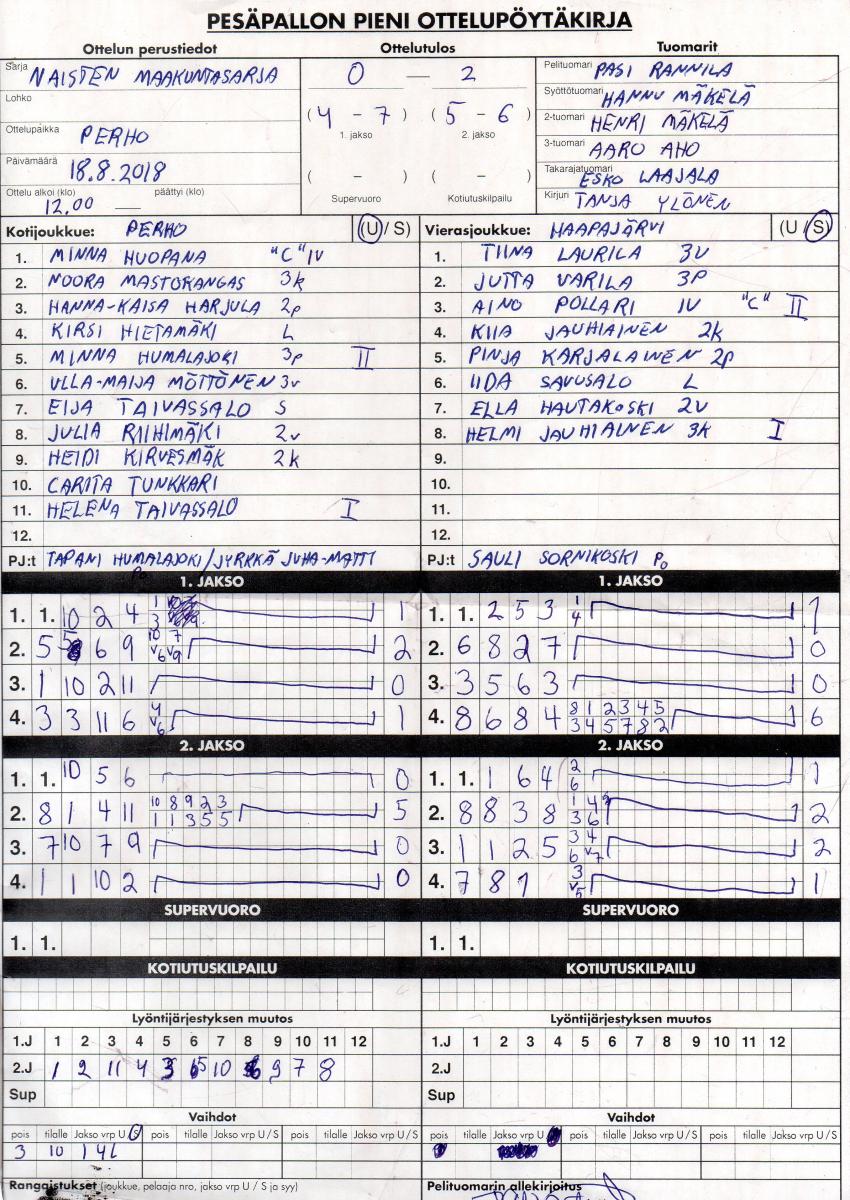 PESÄPALLON PIENI OTTELUPÖYTÄKIRJA
Ottelun perustiedot Ottelutulos Tuomarit
Sarja NAISTEN MAAKUNTASARJA
Lohko
Ottelupaikka PERHO
Päivämäärä 18.8.2018
Ottelu alkoi (klo) päättyi (klo)
12.00 —
0 — 2
( 4 - 7 ) ( 5 - 6 )
1. jakso 2. jakso
( – ) ( – )
Supervuoro Kotiutuskilpailu
Pelituomari PASI RANNILA
Syöttötuomari HANNU MÄKELÄ
2-tuomari HENRI MÄKELÄ
3-tuomari AARO AHO
Takarajatuomari ESKO LAAJALA
Kirjuri TANJA YLÖNEN
Kotijoukkue: PERHO (U / S)
1. MINNA HUOPANA "C" IV
2. NOORA MASTOKANGAS 3k
3. HANNA-KAISA HARJULA 2p
4. KIRSI HIETAMÄKI L
5. MINNA HUMALAJOKI 3p II
6. ULLA-MAIJA MÖTTÖNEN 3v
7. EIJA TAIVASSALO S
8. JULIA RIIHIMÄKI 2v
9. HEIDI KIRVESMÄK 2k
10. CARITA TUNKKARI
11. HELENA TAIVASSALO I
12.
PJ:t TAPANI HUMALAJOKI/JYRKKÄ JUHA-MATTI
Po
Vierasjoukkue: HAAPAJÄRVI (U / S)
1. TIINA LAURILA 3V
2. JUTTA VARILA 3P
3. AINO POLLARI IV "C" II
4. KIIA JAUHIAINEN 2k
5. PINJA KARJALAINEN 2p
6. IIDA SAVUSALO L
7. ELLA HAUTAKOSKI 2V
8. HELMI JAUHIAINEN 3k I
9.
10.
11.
12.
PJ:t SAULI SORNIKOSKI Po
1. JAKSO 1. JAKSO
1. 1. 10 2 4 1
2. 5 5 6 9 2
3. 1 10 2 11 0
4. 3 3 11 6 1
1. 1. 2 5 3 1 4 1
2. 6 8 2 7 0
3. 3 5 6 3 0
4. 8 6 8 4 8 1 2 3 4 5 6
3 4 5 7 8 2
2. JAKSO 2. JAKSO
1. 1. 10 5 6 0
2. 8 1 4 11 10 8 9 2 3 5
1 1 3 5 5
3. 7 10 7 9 0
4. 1 1 10 2 0
1. 1. 1 6 4 2 6 1
2. 8 8 3 8 2
3. 1 1 2 5 2
4. 7 8 1 1
SUPERVUORO SUPERVUORO
1. 1. 1. 1.
KOTIUTUSKILPAILU KOTIUTUSKILPAILU
Lyöntijärjestyksen muutos Lyöntijärjestyksen muutos
1.J 1 2 3 4 5 6 7 8 9 10 11 12 1.J 1 2 3 4 5 6 7 8 9 10 11 12
2.J 1 2 11 4 3 5 10 6 9 7 8 2.J
Sup Sup
Vaihdot Vaihdot
pois tilalle Jakso vrp U / S pois tilalle Jakso vrp U / S pois tilalle Jakso vrp U / S
3 10 1 4L
pois tilalle Jakso vrp U pois tilalle Jakso vrp U / S pois tilalle Jakso vrp U / S
Rangaistukset (joukkue, pelaaja nro, jakso vrp U / S ja syy) Pelituomarin allekirjoitus